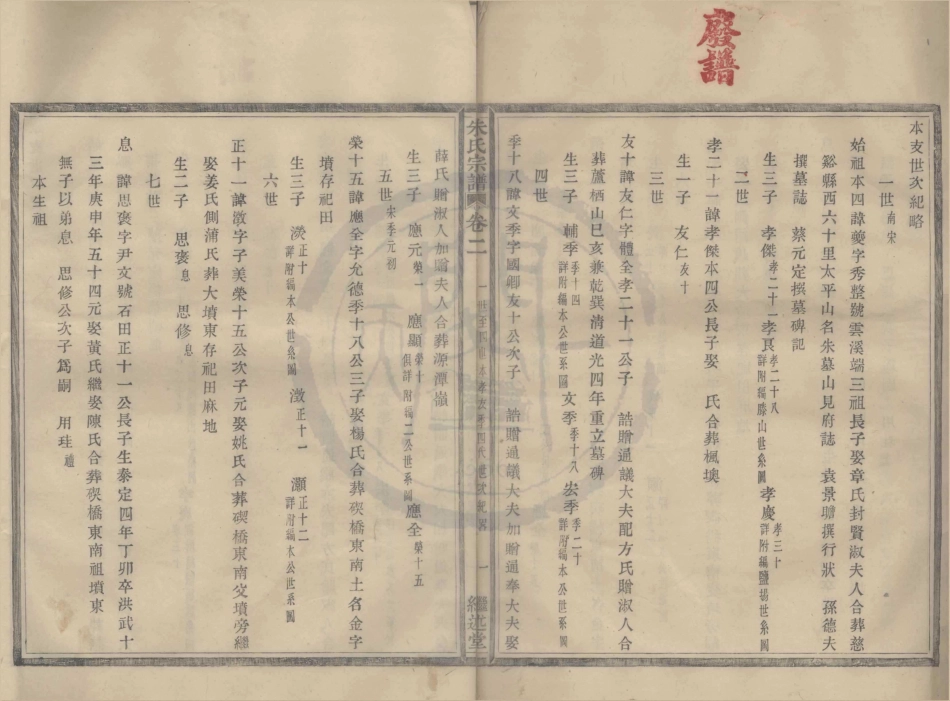 廢譜
本支世次紀略
一世 南宋
始祖本四諱夔字秀整號雲溪端三祖長子娶章氏封賢淑夫人合葬慈
谿縣西六十里太平山名朱墓山見府誌 袁景聰撰行狀 孫德夫
撰墓誌 蔡元定撰墓碑記
生三子 孝傑 孝二十一 孝良 孝二十八 詳附編滕山世系圖 孝慶 孝三十 詳附編鹽場世系圖
二世
孝二十一諱孝傑本四公長子娶 氏合葬楓墺
生一子 友仁 友十
三世
友十諱友仁字體全孝二十一公子 誥贈通議大夫配方氏贈淑人合
葬蘆栖山巳亥兼乾巽清道光四年重立墓碑
生三子 輔季 季十四 詳附編本公世系圖 文季 季十八 宏季 季二十 詳附編本公世系圖
四世
季十八諱文季字國卿友十公次子 誥贈通議大夫加贈通奉大夫娶
朱氏宗譜 卷二
一
繼述堂
薛氏贈淑人加贈夫人合葬源潭嶺
生三子 應元 榮一 應顯 榮十 俱詳附編二公世系圖 應全 榮十五
五世 宋季元初
榮十五諱應全字允德季十八公三子娶楊氏合葬碶橋東南土名金字
墳存祀田
生三子 濙 正十 詳附編本公世系圖 澂 正十一 灝 正十二 詳附編本公世系圖
六世
正十一諱澂字子美榮十五公次子元娶姚氏合葬碶橋東南安墳旁繼
娶姜氏側蒲氏葬大墳東存祀田麻地
生二子 思褒 息 思修 息
七世
息 諱思褒字尹文號石田正十一公長子生泰定四年丁卯卒洪武十
三年庚申年五十四元娶黃氏繼娶陳氏合葬碶橋東南祖墳東
無子以弟息 思修公次子爲嗣 用珪 禮
本生祖